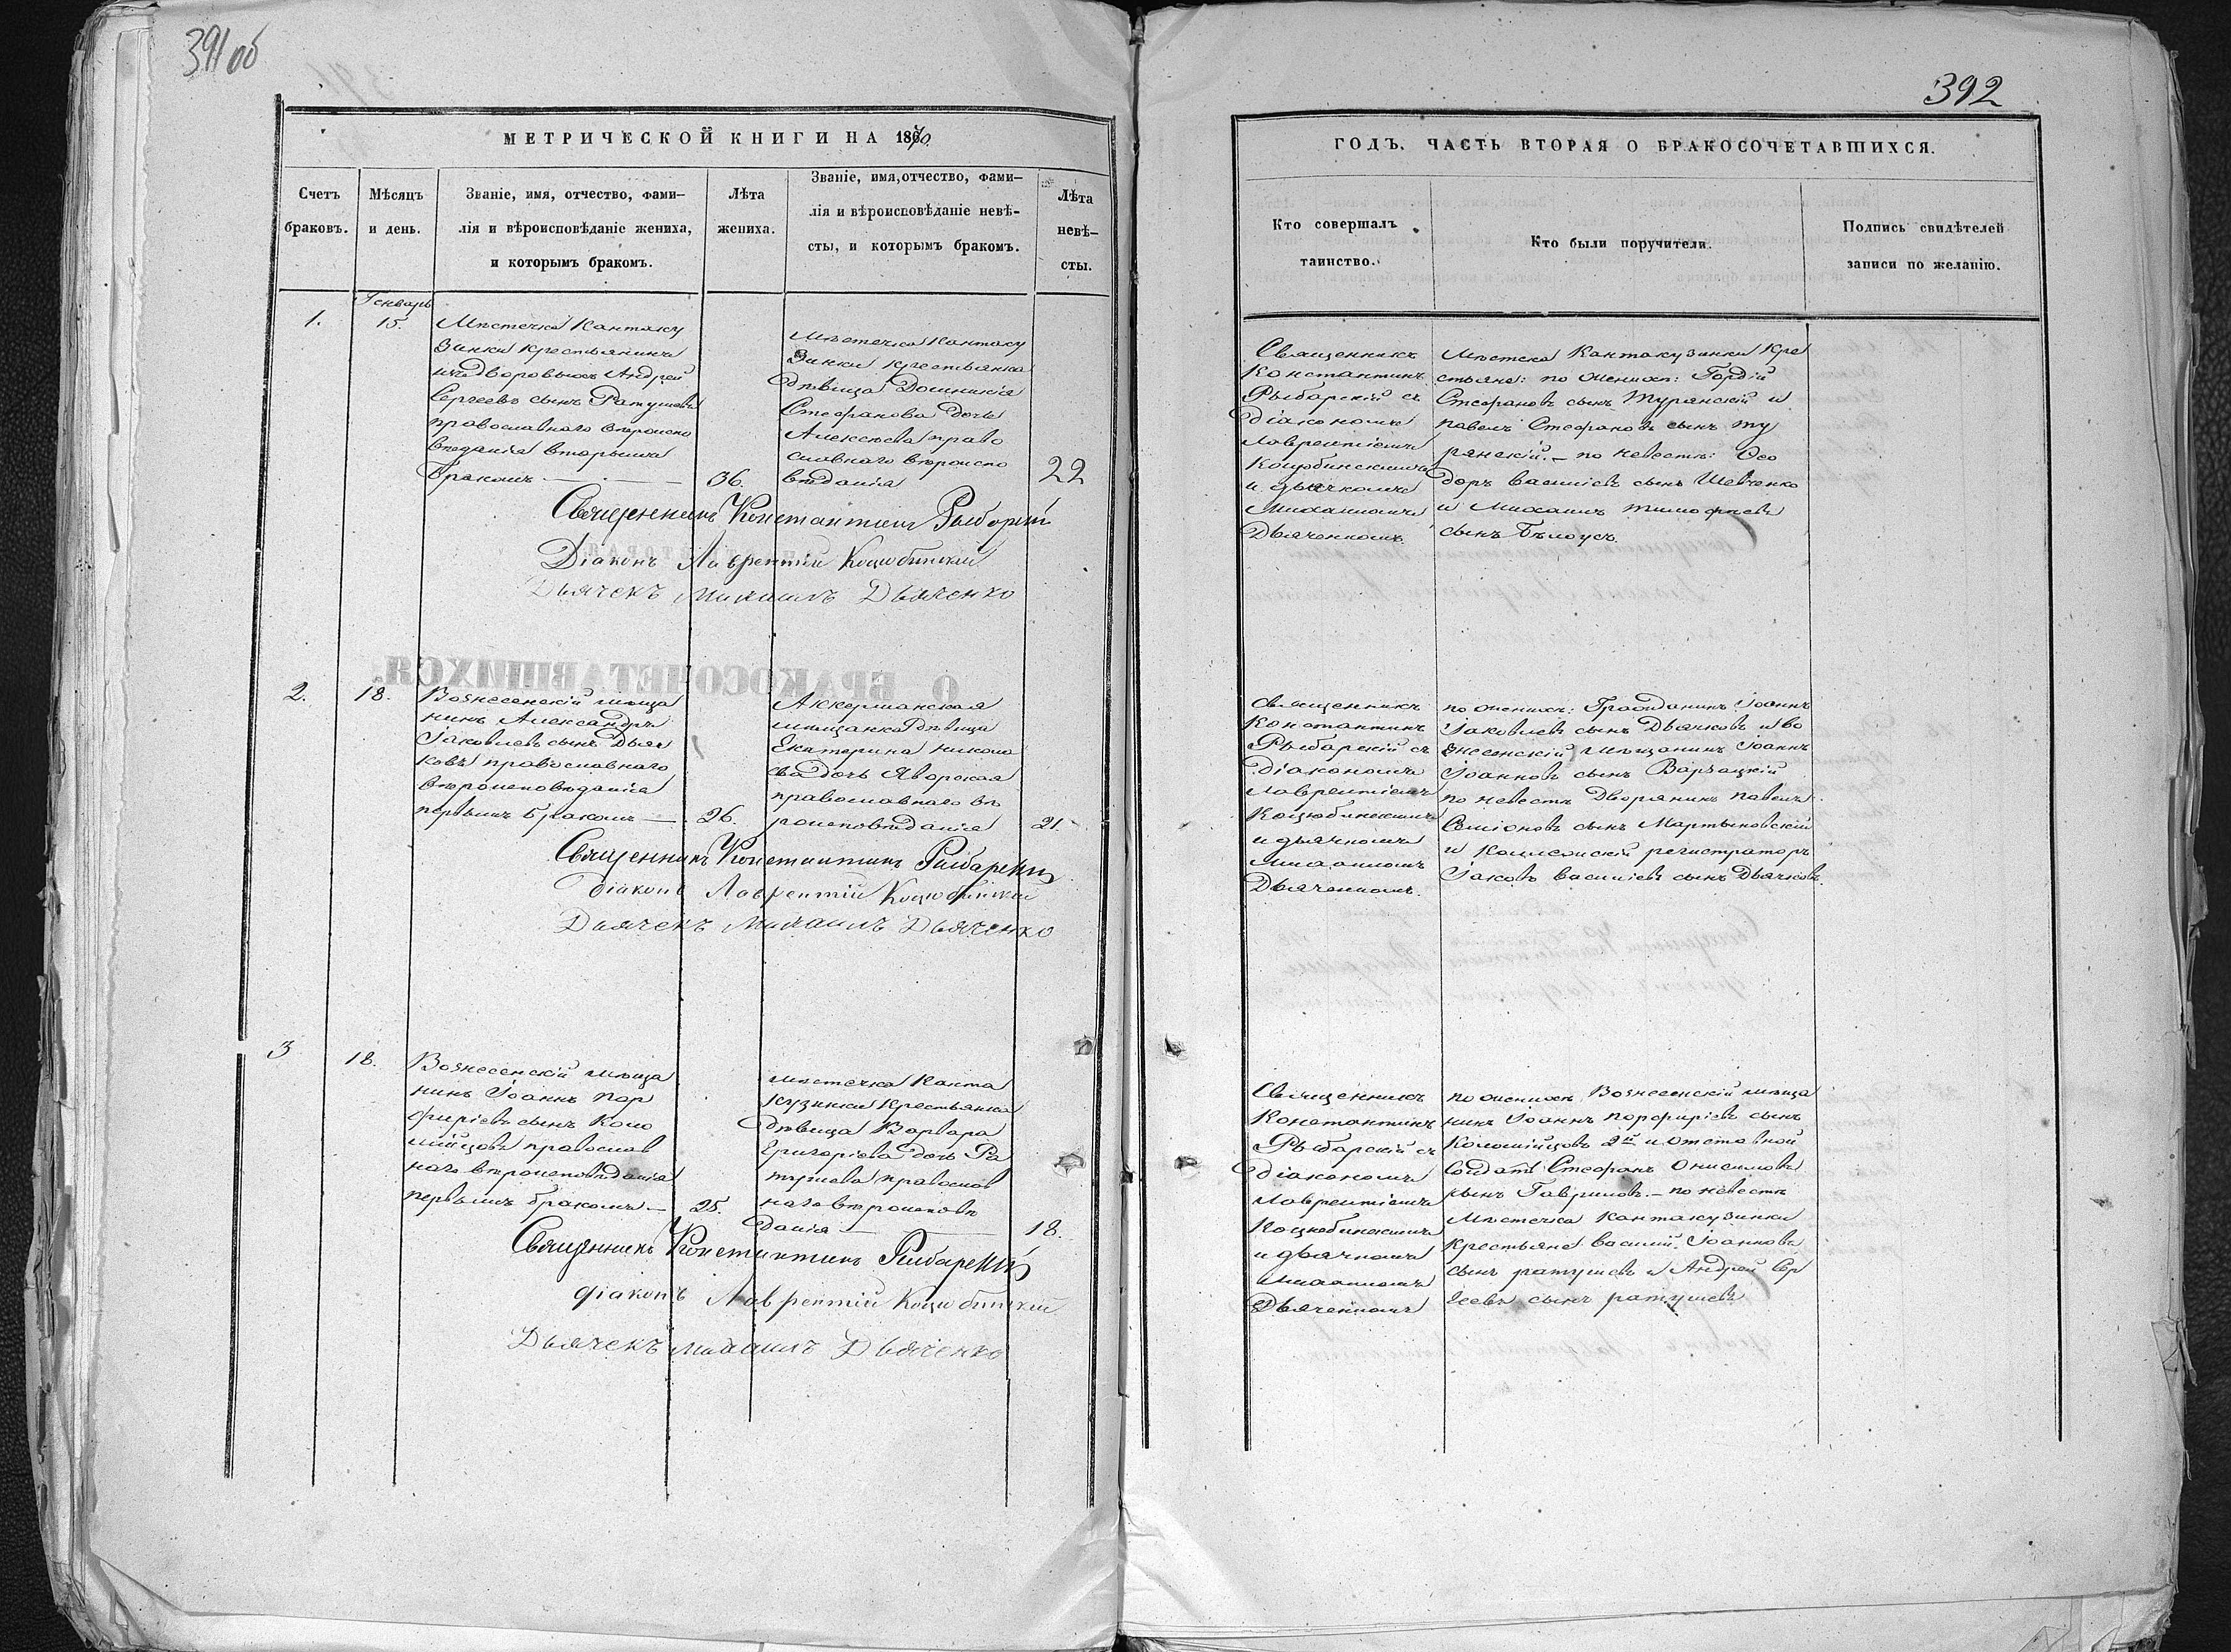 391 об
МЕТРИЧЕСКОЙ КНИГИ НА 1870
Счетъ браковъ.
Мѣсяцъ и день.
Званіе, имя, отчество, фами-
лія и вѣроисповѣданіе жениха,
и которымъ бракомъ.
Лѣта
жениха.
Званіе, имя, отчество, фами-
лія и вѣроисповѣданіе невѣ-
сты, и которымъ бракомъ.
Лѣта
невѣ-
сты.
Генварь
1.
15.
Мѣстечка Кантаку
зинки крестьянинъ
изъ дворовыхъ Андрей
Сергеевъ сынъ Ратушевъ
православнаго вѣроиспо
вѣданія вторымъ
бракомъ
36.
Мѣстечка Кантаку
зинки крестьянка
дѣвица Домникія
Стефанова дочь
Алексѣева право
славнаго вѣроиспо
вѣданія
22
Священникъ Константинъ Рыбарскій
Діаконъ Лаврентій Коцюбинскій
Дьячекъ Михаилъ Дьяченко
2.
18.
Вознесенскій мѣща
нинъ Александръ
Іаковлевъ сынъ Дьяч
ковъ православнаго
вѣроисповѣданія
первымъ бракомъ
26.
Аккерманская
мѣщанка дѣвица
Екатерина Никола
ева дочь Яворская
православнаго вѣ
роисповѣданія
21.
Священникъ Константинъ Рыбарскій
Діаконъ Лаврентій Коцюбинскій
Дьячекъ Михаилъ Дьяченко
3
18.
Вознесенскій мѣща
нинъ Іоаннъ Пор
фиріевъ сынъ Коло
мійцовъ православ
наго вѣроисповѣданія
первымъ бракомъ
25.
Мѣстечка Канта
кузинки крестьянка
дѣвица Варвара
Григоріева дочь Ра
тушева православ
наго вѣроисповѣ
данія
18.
Священникъ Константинъ Рыбарскій
Діаконъ Лаврентій Коцюбинскій
Дьячекъ Михаилъ Дьяченко
392
ГОДЪ. ЧАСТЬ ВТОРАЯ О БРАКОСОЧЕТАВШИХСЯ.
Кто совершалъ
таинство.
Кто были поручители.
Подпись свидѣтелей
записи по желанію.
Священникъ
Константинъ
Рыбарскій съ
діакономъ
Лаврентіемъ
Коцюбинскимъ
и дьячкомъ
Михаиломъ
Дьяченкомъ.
Мѣстечка Кантакузинки кре
стьяне: по женихѣ: Гордій
Стефановъ сынъ Турянскій и
Павелъ Стефановъ сынъ Ту
рянскій. — по невестѣ: Ѳео
доръ Василіевъ сынъ Шевченко
и Михаилъ Тимофѣевъ
сынъ Бѣлоусъ.
Священникъ
Константинъ
Рыбарскій съ
діакономъ
Лаврентіемъ
Коцюбинскимъ
и дьячкомъ
Михаиломъ
Дьяченкомъ.
по женихѣ: Гражданинъ Іоаннъ
Іаковлевъ сынъ Дьячковъ и Во
знесенскій мѣщанинъ Іоаннъ
Іоанновъ сынъ
по невестѣ Дворянинъ Павелъ
Симіоновъ сынъ Мартыновскій
и Коллежскій регистраторъ
Іаковъ Василіевъ сынъ Дьячковъ.
Священникъ
Константинъ
Рыбарскій съ
діакономъ
Лаврентіемъ
Коцюбинскимъ
и дьячкомъ
Михаиломъ
Дьяченкомъ
по женихѣ Вознесенскій мѣща
нинъ Іоаннъ Порфиріевъ сынъ
Коломійцовъ 2й и отставной
солдатъ Стефанъ Онисимовъ
сынъ Гавриловъ. — по невестѣ
Мѣстечка Кантакузинки
крестьяне Василій Іоанновъ
сынъ Ратушевъ и Андрей Сер
геевъ сынъ Ратушевъ